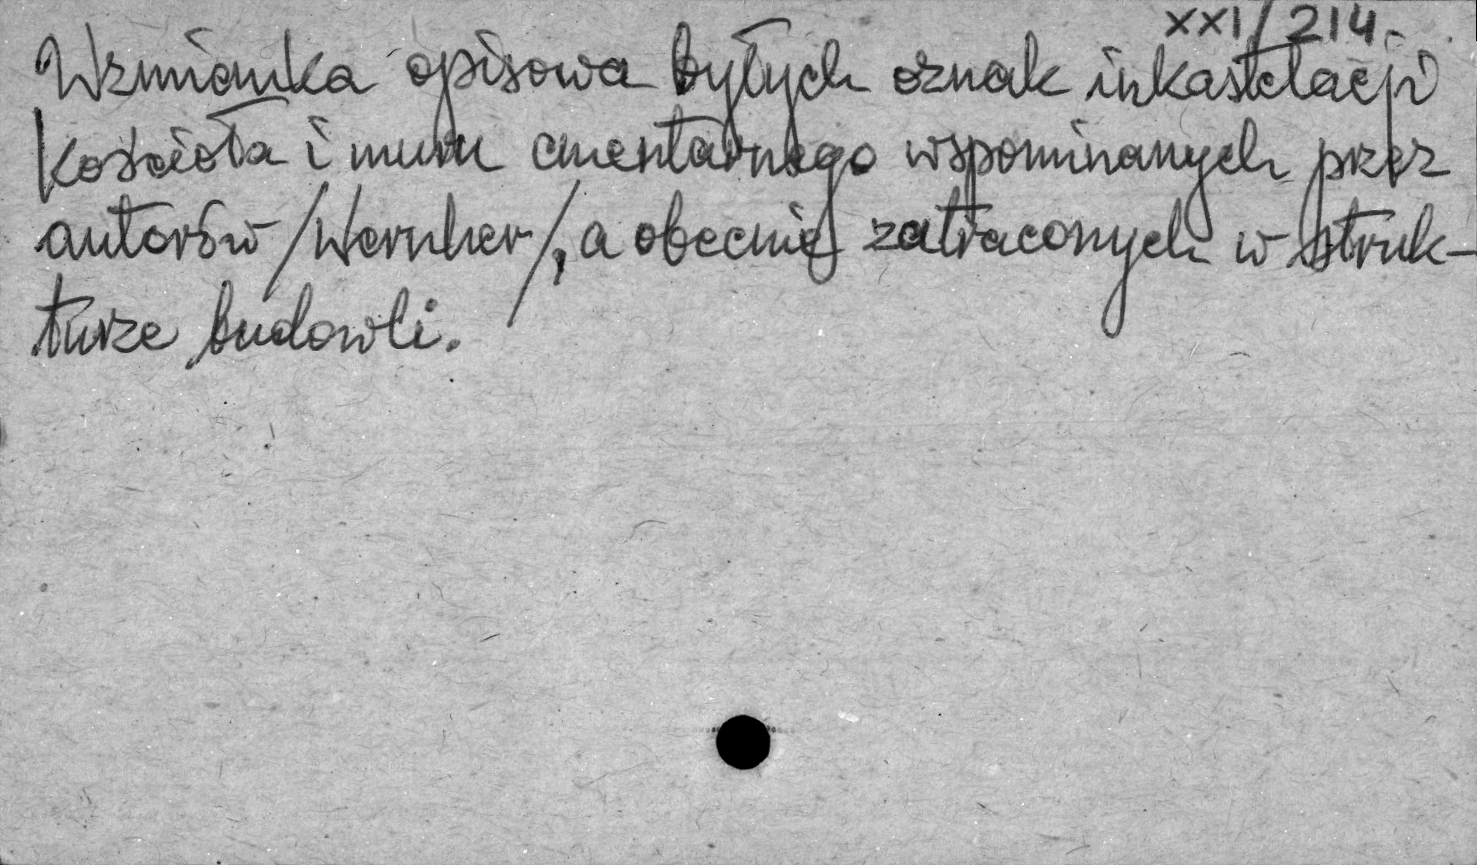 XXI/214.
Wzmianka opisowa byłych oznak inkastelacji
kościoła i muru cmentarnego wspominanych przez
autorów /Wernher/, a obecnie zatraconych w struk-
turze budowli.